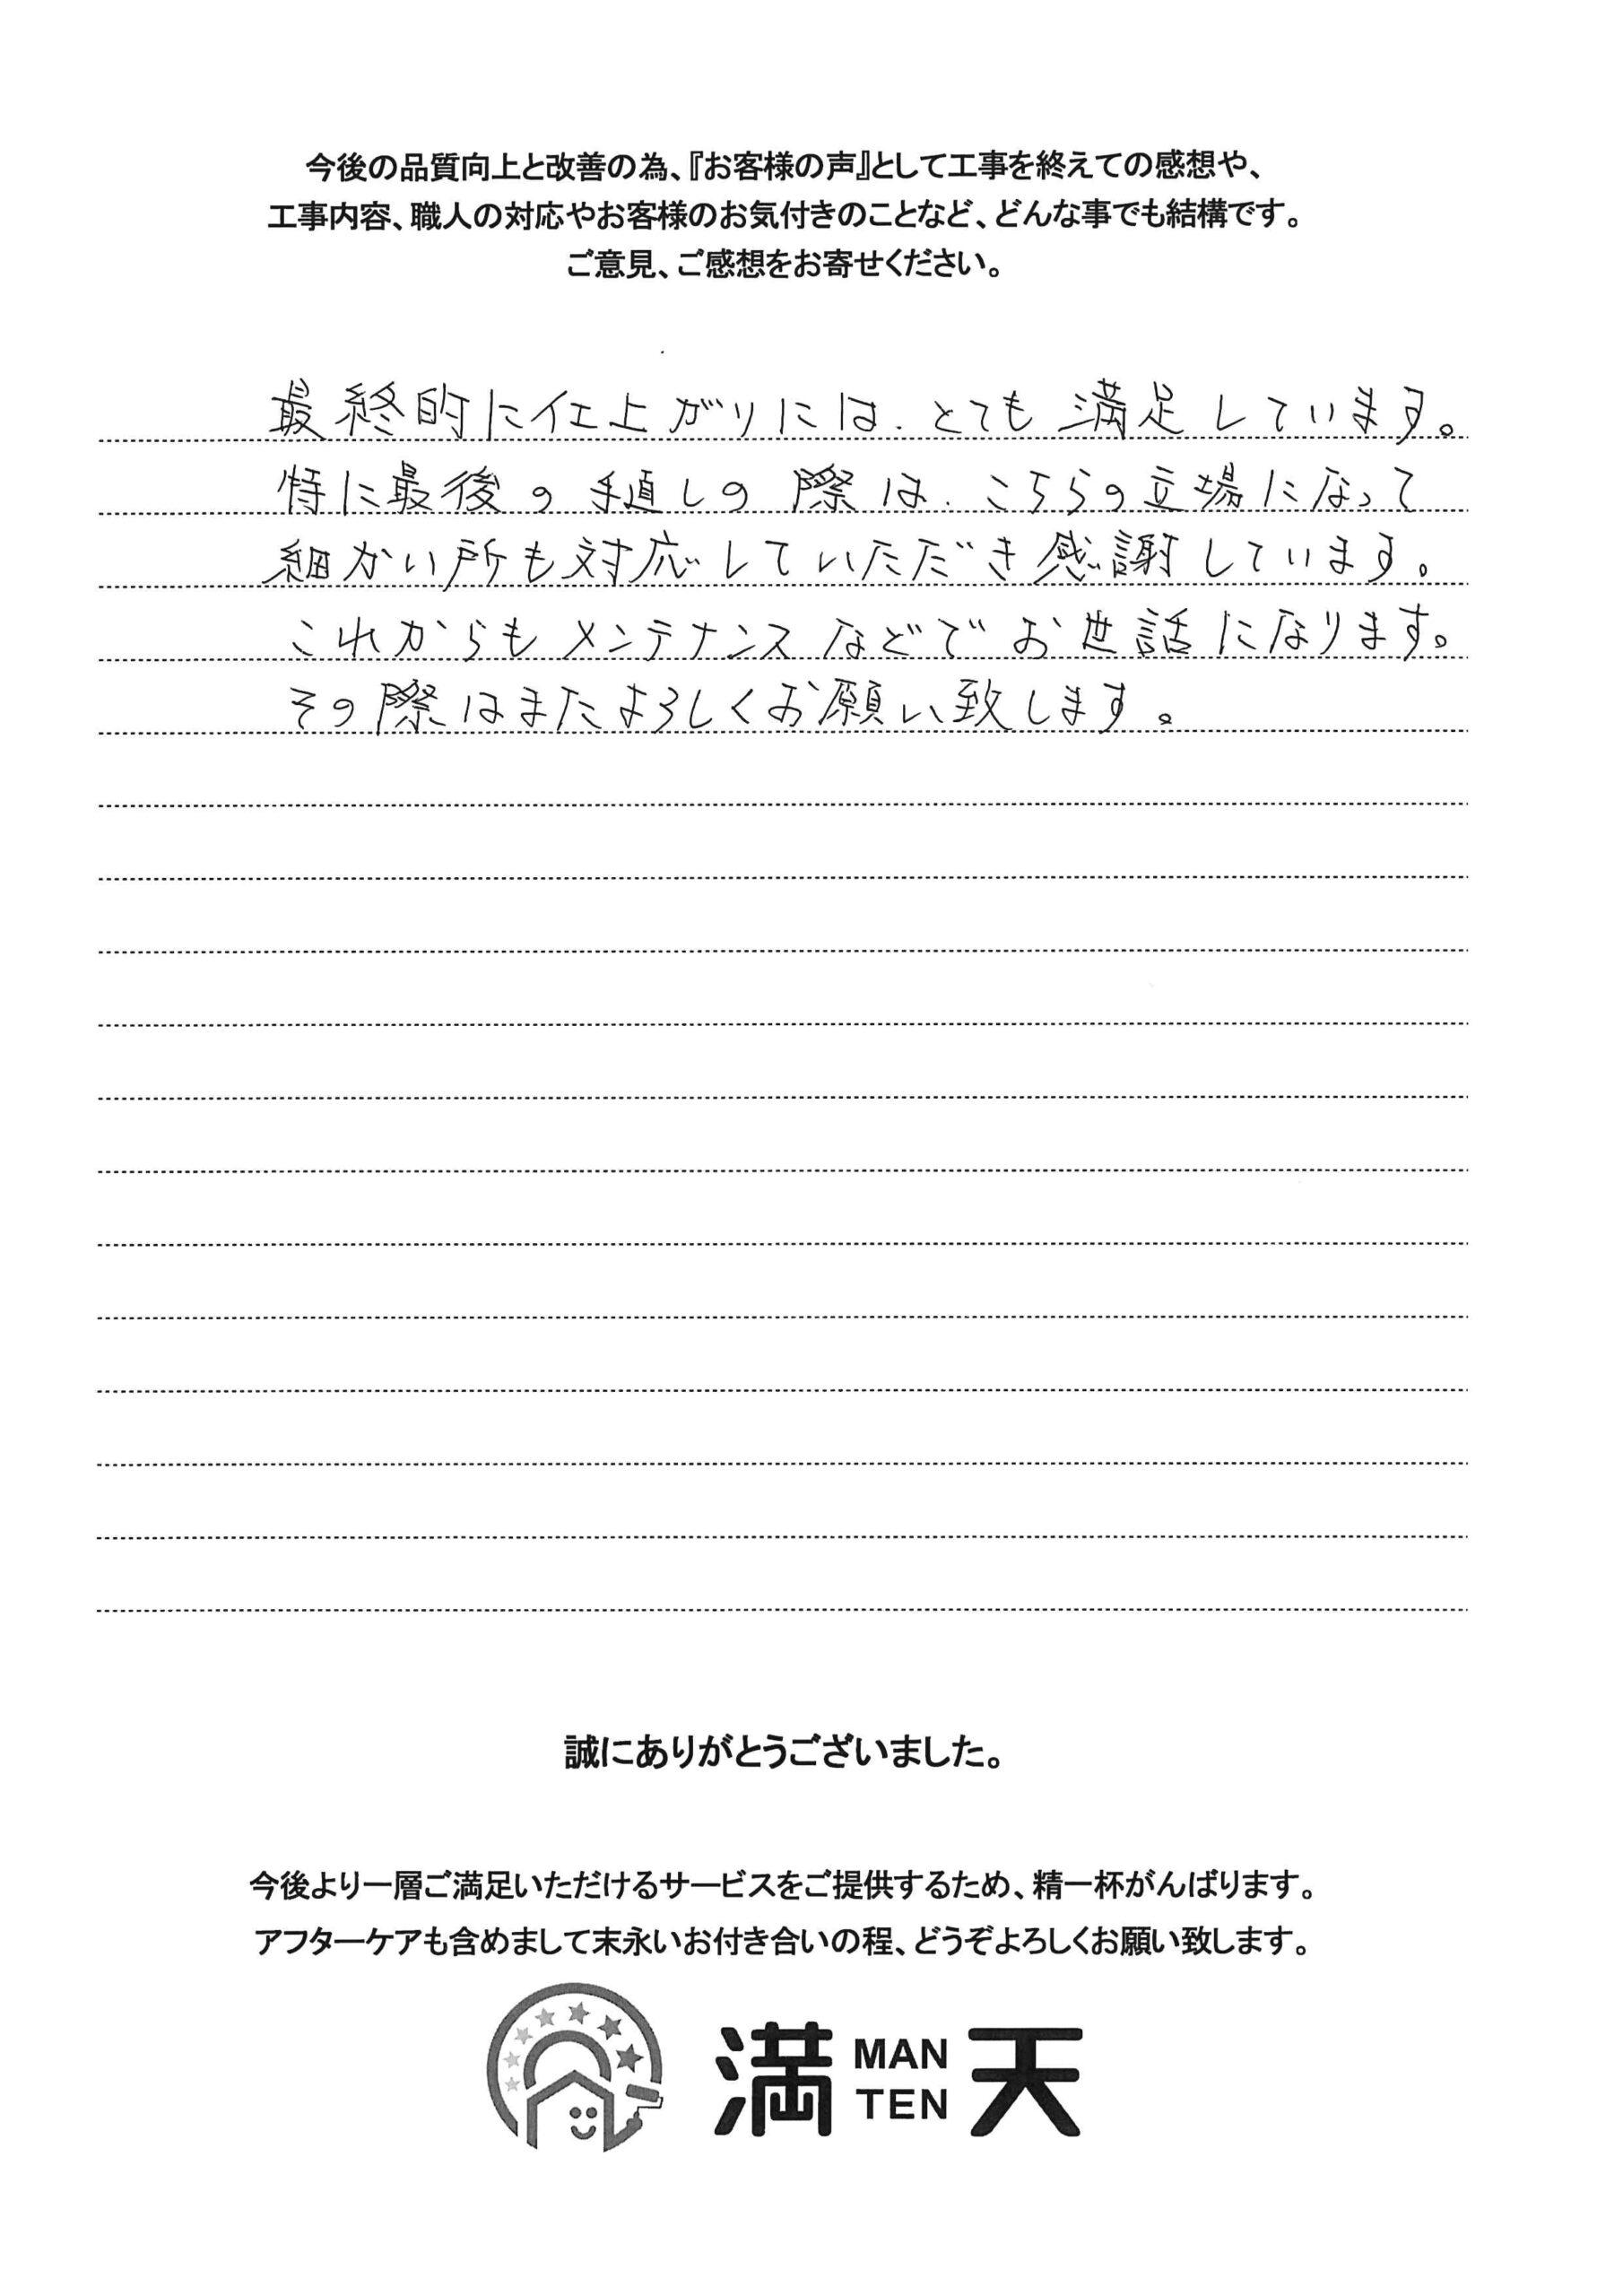 今後の品質向上と改善の為、『お客様の声』として工事を終えての感想や、
工事内容、職人の対応やお客様のお気付きのことなど、どんな事でも結構です。
ご意見、ご感想をお寄せください。
最終的に仕上がりには、とても満足しています。
特に最後の手直しの際は、こちらの立場になって
細かい所も対応していただき感謝しています。
これからもメンテナンスなどでお世話になります。
その際はまたよろしくお願い致します。
誠にありがとうございました。
今後より一層ご満足いただけるサービスをご提供するため、精一杯がんばります。
アフターケアも含めまして末永いお付き合いの程、どうぞよろしくお願い致します。
満 MAN TEN 天